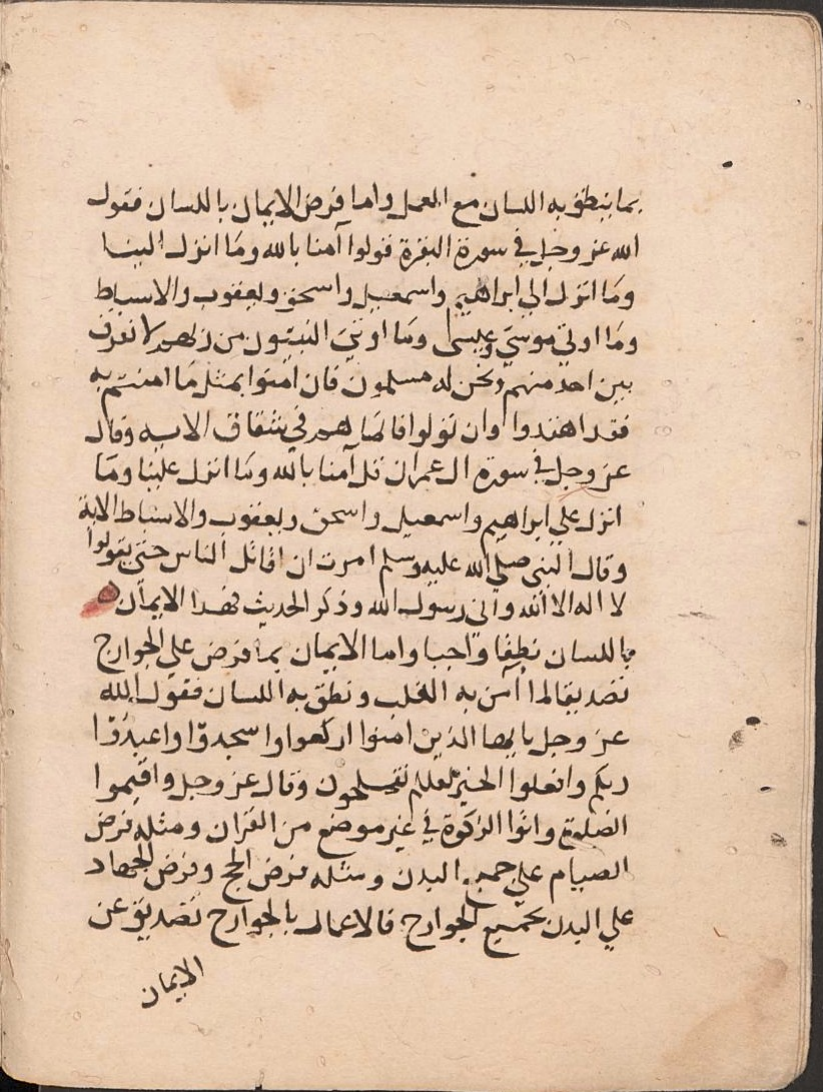 بما ينطق به اللسان مع العمل واما فرض الايمان باللسان فقول
الله عز وجل في سورة البقرة قولوا آمنا بالله وما انزل الينا
وما انزل الي ابراهيم واسمعيل واسحق ويعقوب والاسباط
وما اوتي موسي وعيسى وما اوتي النبيون من ربهم لا نفرق
بين احد منهم ونحن له مسلمون فان امنوا بمثل ما امنتم به
فقد اهتدوا وان تولوا فانما هم في شقاق الايه وقال
عز وجل في سورة ال عمران قل آمنا بالله وما انزل علينا وما
انزل علي ابراهيم واسمعيل واسحق ويعقوب والاسباط الاية
وقال النبي صلي الله عليه وسلم امرت ان اقاتل الناس حتى يقولوا
لا اله الا الله واني رسول الله وذكر الحديث فهذا الايمان
باللسان نطقا واجبا واما الايمان بما فرض علي الجوارح
تصديقا لما آمن به القلب ونطق به اللسان فقول الله
عز وجل يا يها الذين امنوا اركعوا واسجدوا واعبدوا
ربكم وافعلوا الخير لعلكم تفلحون وقال عز وجل واقيموا
الصلوة واتوا الزكوة في غير موضع من القران ومثله فرض
الصيام علي جميع البدن ومثله فرض الحج وفرض الجهاد
علي البدن بجميع الجوارح فالاعمال بالجوارح تصديق عن
الايمان